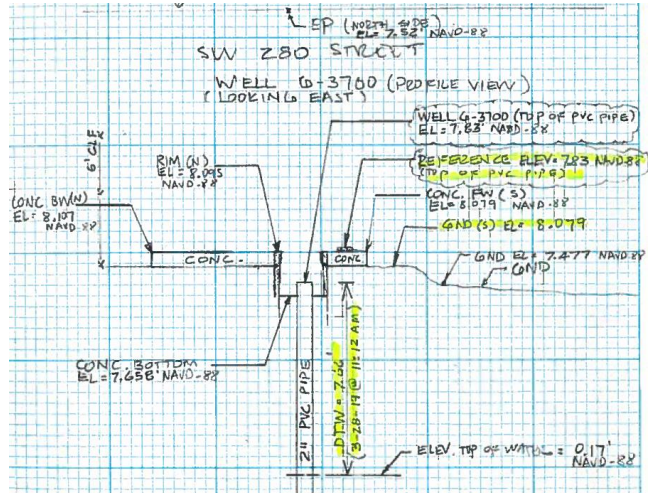 EP (NORTH SIDE)
EL= 7.52' NAVD-88
SW 280 STREET
WELL G-3700 (PROFILE VIEW)
(LOOKING EAST)
WELL G-3700 (TOP OF PVC PIPE)
EL= 7.83' NAVD-88
REFERENCE ELEV= 7.83 NAVD88
(TOP OF PVC PIPE)
6' CLF
RIM (N)
EL= 8.095
NAVD-88
CONC. FW (S)
EL= 8.079 NAVD-88
CONC BW(N)
EL= 8.107
NAVD-88
GND (S) EL= 8.079
GND EL= 7.477 NAVD-88
GND
CONC.
CONC
CONC. BOTTOM
EL= 7.658' NAVD-88
2" PVC PIPE
DTW = 7.66'
(3-28-19 @ 11:12 AM)
ELEV. TOP OF WATER = 0.17'
NAVD-88